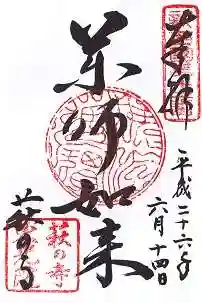 奉拝
平成二十六年
六月十四日
薬師如来
萩の寺
萩の寺